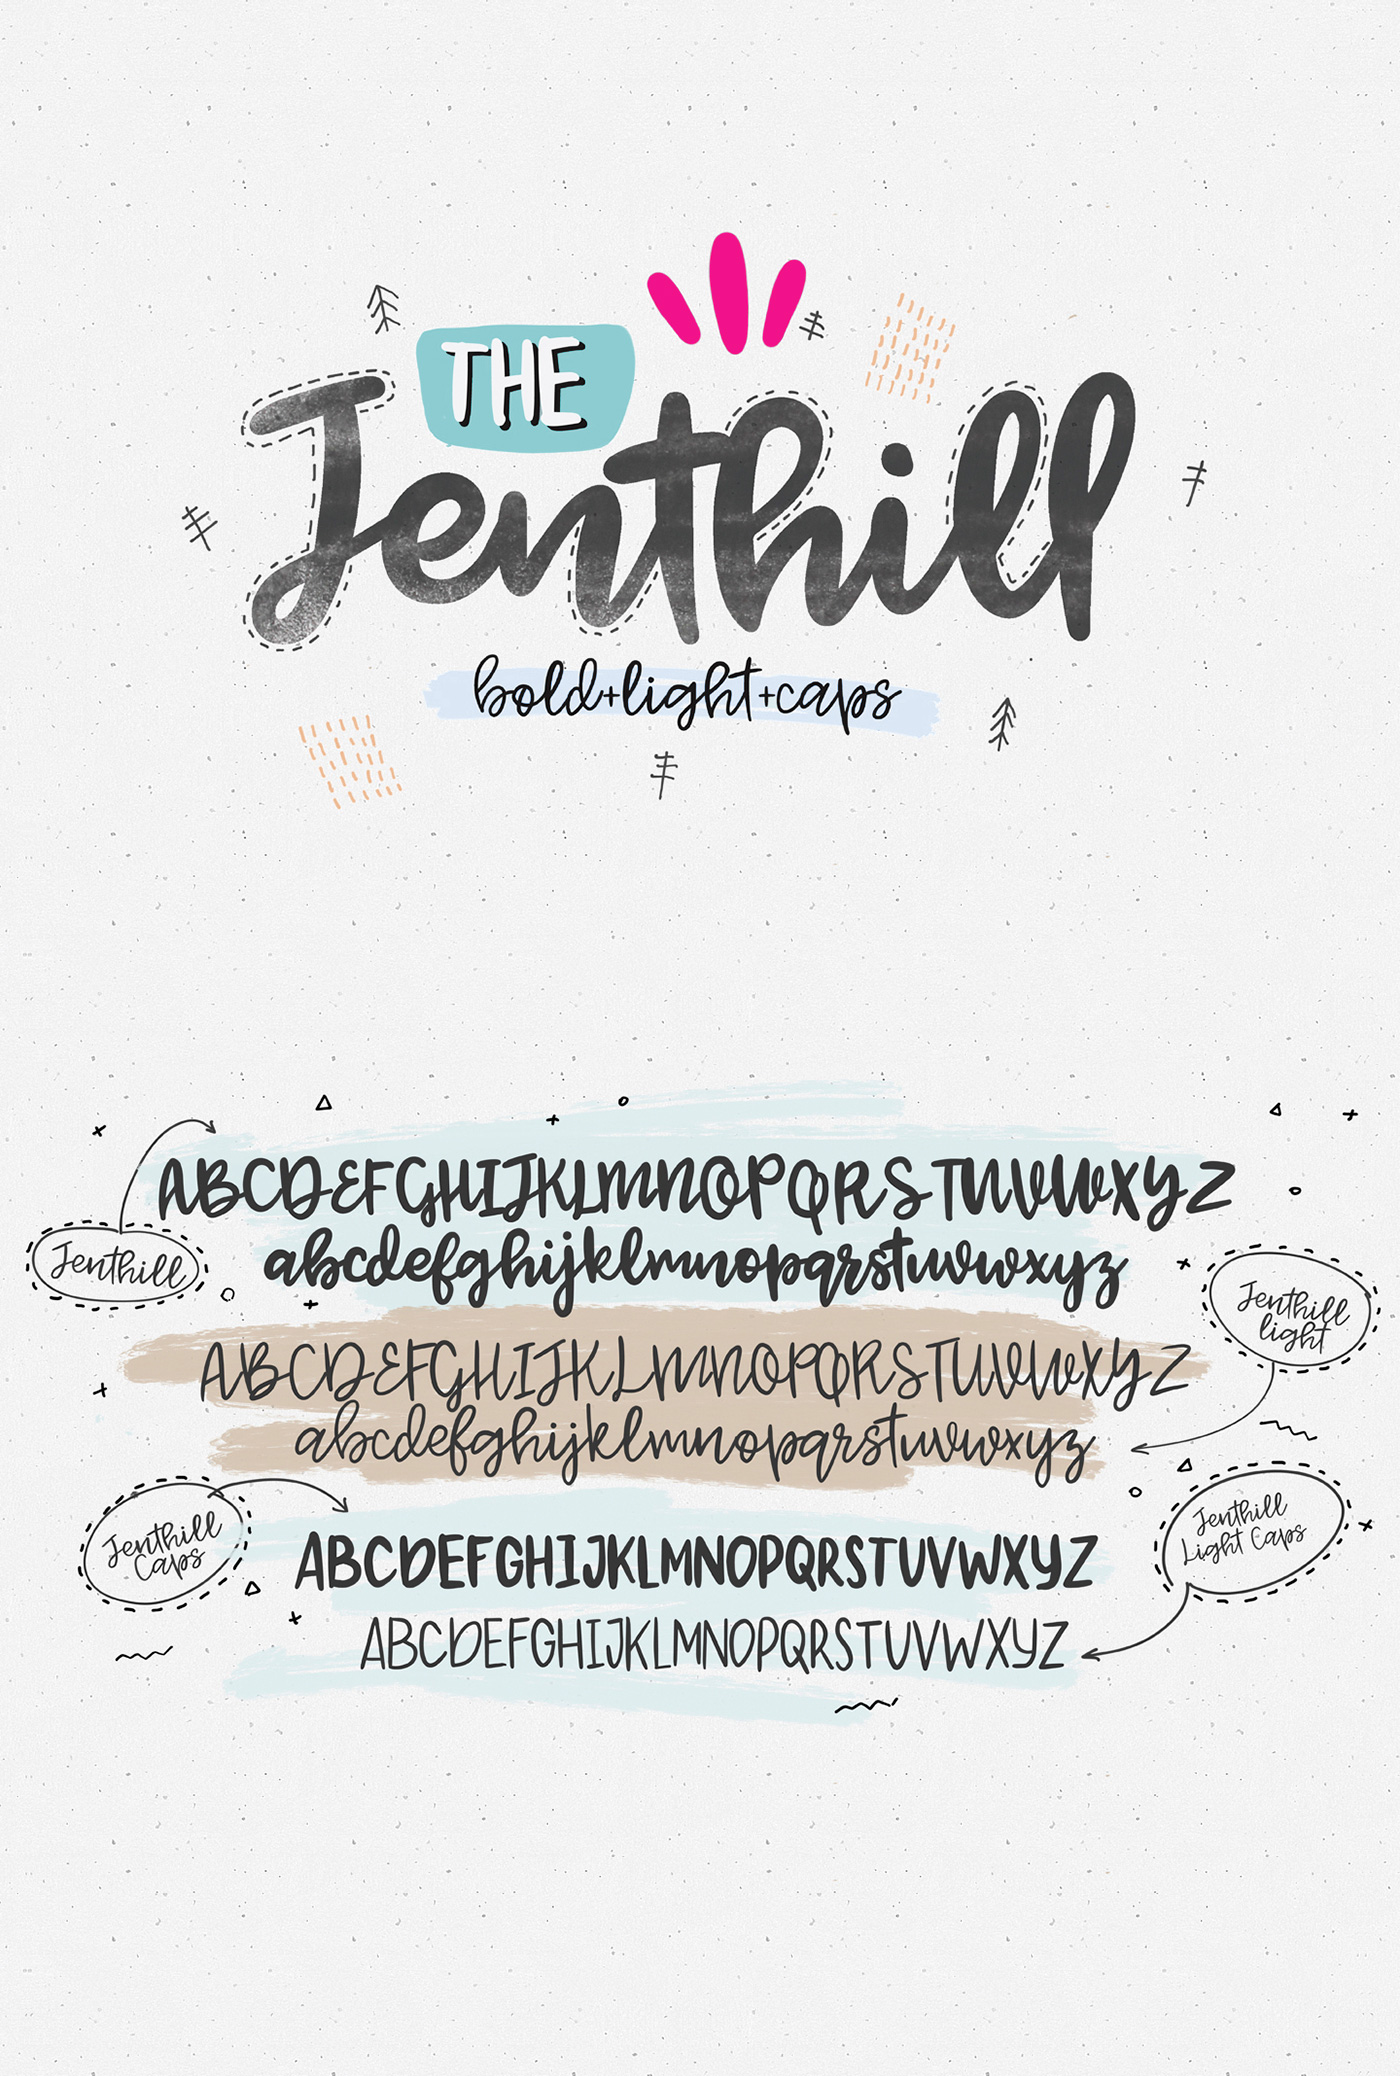 THE
Jenthill
bold+light+caps
ABCDEFGHIJKLMNOPQRSTUVWXYZ
Jenthill
abcdefghijklmnopqrstuvwxyz
Jenthill
light
ABCDEFGHIJKLMNOPQRSTUVWXYZ
abcdefghijklmnopqrstuvwxyz
Jenthill
Caps
Jenthill
Light Caps
ABCDEFGHIJKLMNOPQRSTUVWXYZ
ABCDEFGHIJKLMNOPQRSTUVWXYZ